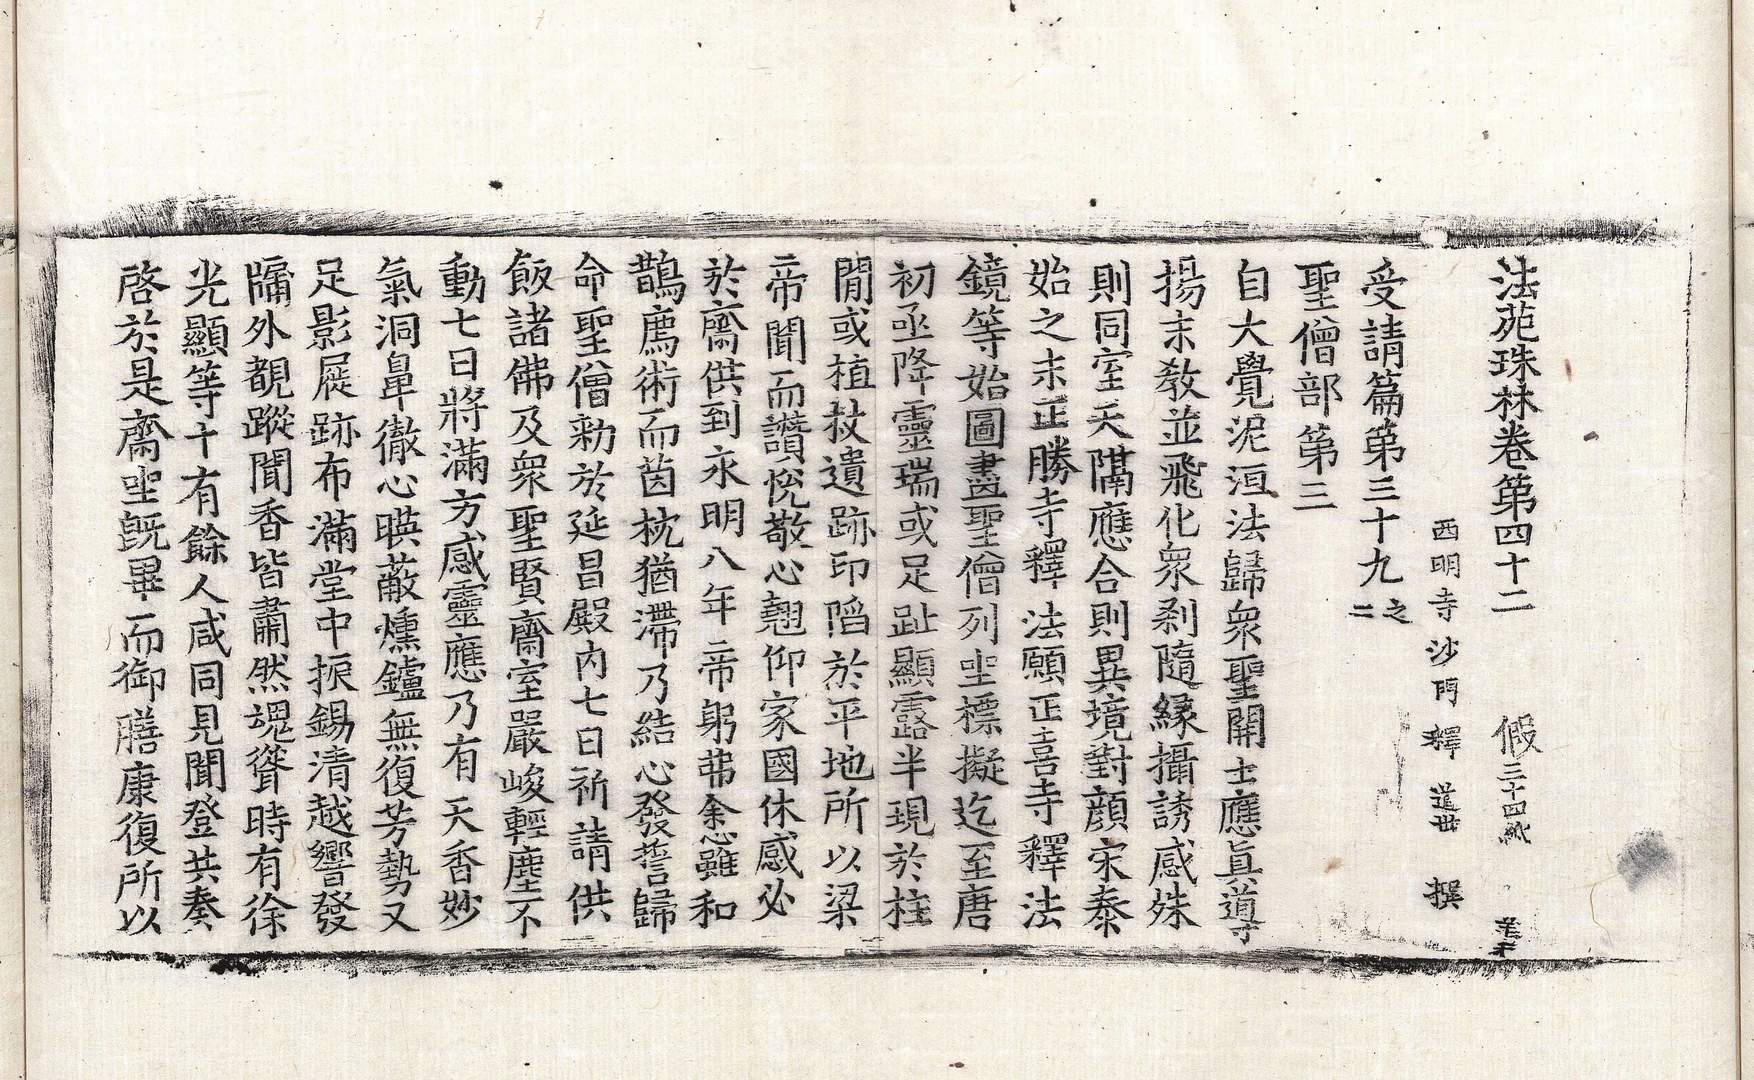 法苑珠林卷第四十二 假 三十四紙
西明寺沙門釋道世撰
受請篇第三十九之二
聖僧部第三
自大覺泥洹法歸衆聖開士應眞導
揚末敎並飛化衆刹隨緣攝誘感殊
則同室天隔應合則異境對顔宋泰
始之末正勝寺釋法願正喜寺釋法
鏡等始圖畫聖僧列坐標擬迄至唐
初亟降靈瑞或足趾顯露半現於柱
閒或植杖遺跡印陷於平地所以梁
帝聞而讚悅敬心翹仰家國休感必
於齋供到永明八年帝躬弗悆雖和
鵲廌術而茵枕猶滯乃結心發誓歸
命聖僧勑於延昌殿內七日祈請供
飯諸佛及衆聖賢齋室嚴峻輕塵不
動七日將滿方感靈應乃有天香妙
氣洞鼻徹心暎蔽燻鑪無復芳勢又
足影屣跡布滿堂中振錫清越響發
牖外覩蹤聞香皆肅然魂聳時有徐
光顯等十有餘人咸同見聞登共奏
啓於是齋坐旣畢而御膳康復所以